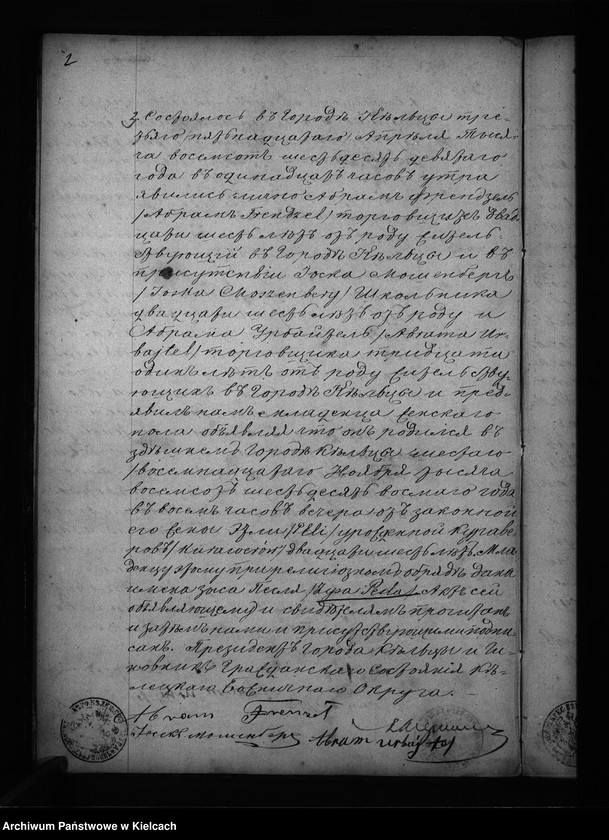 2
3. Состоялось въ Городѣ Кѣльцы тре-
тьяго пятнадцатаго Апрѣля Тыся-
ча восемсотъ шестьдесятъ девятаго
года въ одинадцать часовъ утра
явились лично Абрамъ Френдзель
/Абрамъ Frendzel/ торговщикъ двад-
цати шесть лѣтъ отъ роду житель-
ствующій въ Городѣ Кѣльцы и въ
присутствіи Іоска Мошенберга
/Joska Moszenberg/ Школьника
двадцати шесть лѣтъ отъ роду и
Абрама Урбайтель /Abrama Ur-
bajtel/ торговщика тридцати
одинъ лѣтъ отъ роду жительству-
ющихъ въ Городѣ Кѣльцы и пред-
явилъ намъ младенца женскаго
пола объявляя что онъ родился въ
здѣшнемъ Городѣ Кѣльцы шестаго
/восемнадцатаго Ноября тысяча
восемсотъ шестьдесятъ восмаго года
въ восемъ часовъ вечера отъ законной
его жены Элли /Elli/ урожденной
двадцати шесть лѣтъ. Мла-
денцу этому при религіозномъ обрядѣ дано
имена Песля Актъ сей
объявляющему и свидѣтелямъ прочитанъ
и затѣмъ нами и присутствующими подпи-
санъ. Президентъ Города Кѣльцы и Чи-
новникъ Гражданскаго Состоянія Кѣ-
лецкаго Божничнаго Округа.
Abram Frenzel
Іоска Мошенберг Abram urbajtel
Archiwum Państwowe w Kielcach